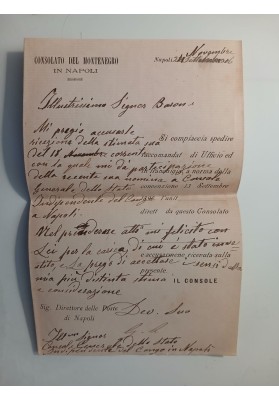 CONSOLATO DEL MONTENEGRO
IN NAPOLI
Napoli, 24 Novembre
Illustrissimo Signor Barone
Mi pregio accusarle Si compiaccia spedire
ricezione della stimata sua
del 18 corrente raccomandat di Ufficio ed
con la quale mi da partecipazione
della recente sua nomina a Console a norma della
Generale dello Stato convenzione 15 Settembre
Indipendente del Congo
a Napoli. diretti da questo Consolato
Nel prenderne atto mi felicito con
Lei per la carica di cui è stato inve
stito, e La prego di accettare i sensi della
mia più distinta stima presente.
e considerazione IL CONSOLE
Sig. Direttore delle Poste Dev. Suo
di Napoli
Ill.mo Signor
Console Generale dello Stato
Indipendente del Congo in Napoli